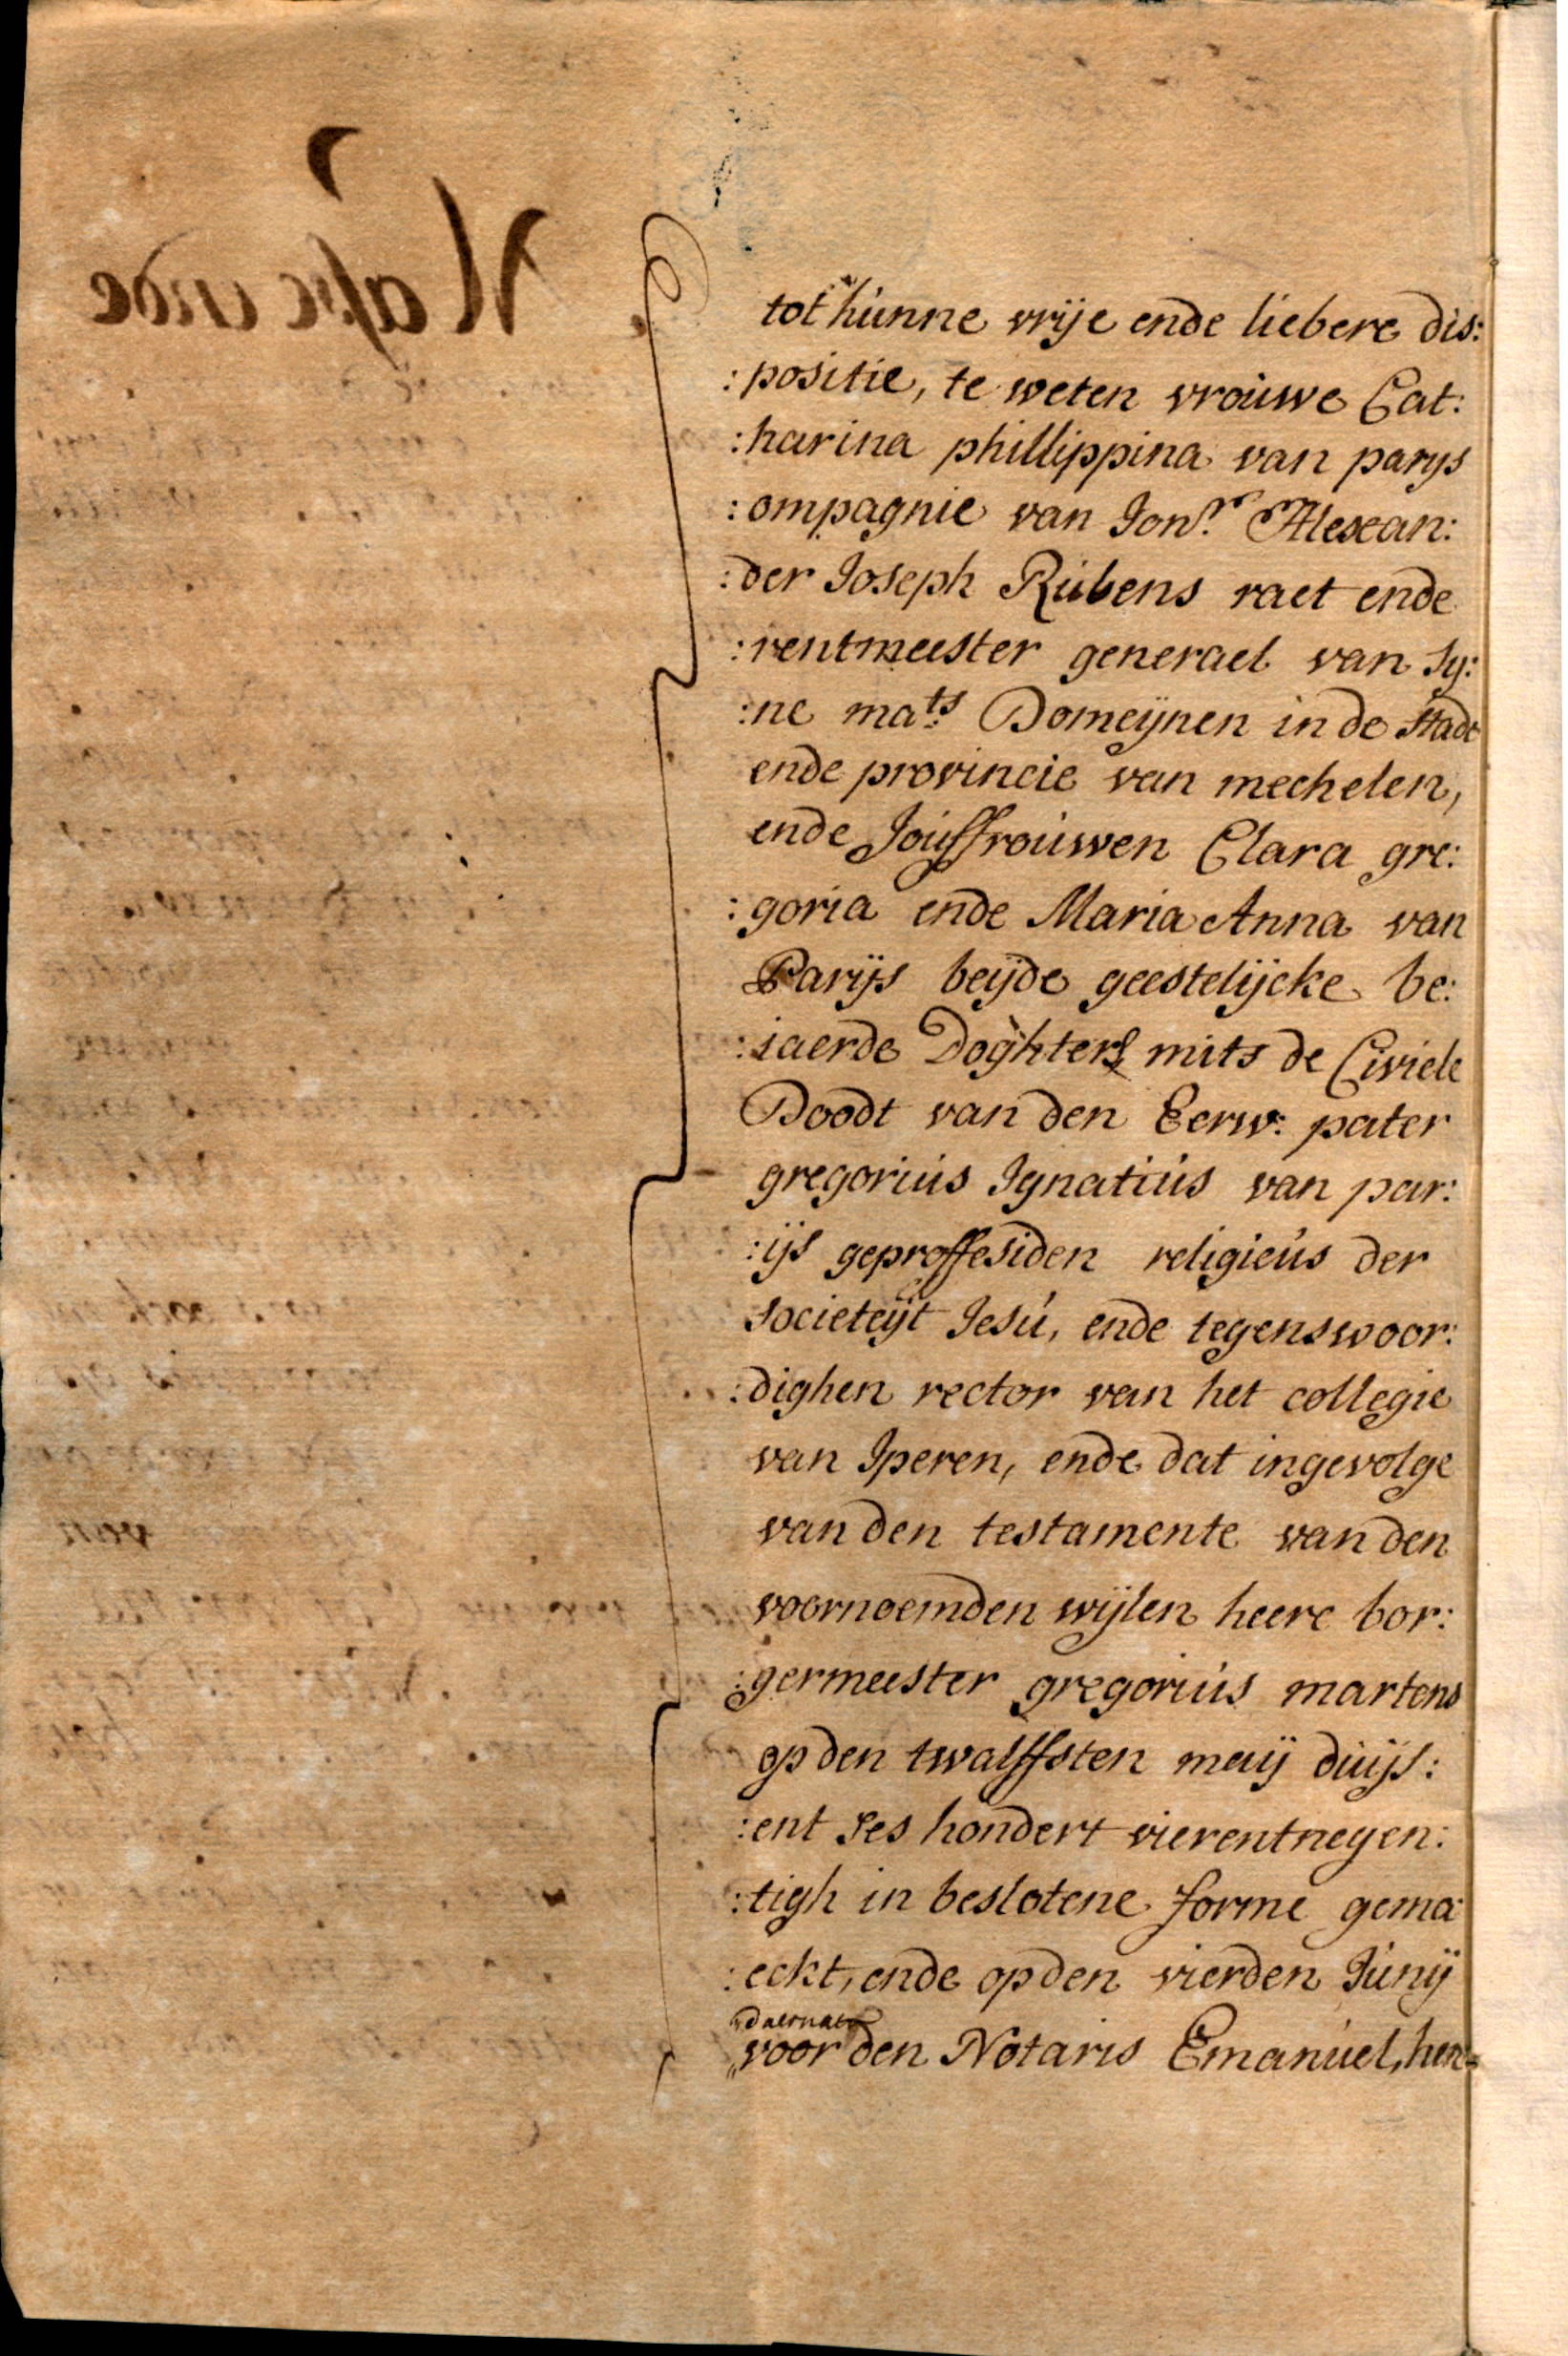 tot hunne vrije ende liebere dis:
:positie, te weten vrouwe Cat:
:harina phillippina van parys
:ompagnie van Jonr. Alexan:
:der Joseph Rubens raet ende
:rentmeester generael van sy:
:ne mats. Domeijnen in de stadt
ende provincie van mechelen,
ende Jouffrouwen Clara gre:
:goria ende Maria Anna van
Parijs beijde geestelijcke be:
:iaerde Doghters mits de Civiele
Doodt van den Eerw: pater
gregorius Ignatius van par:
:ijs geproffesiden religieus der
societeijt Jesu, ende tegenswoor:
:dighen rector van het collegie
van Iperen, ende dat ingevolge
van den testamente van den
voornoemden wijlen heere bor:
:germeester gregorius martens
op den twalffsten meij duijs:
:ent ses hondert vierentnegen:
:tigh in beslotene forme gema:
:eckt, ende op den vierden Junij
daernaer
voor den Notaris Emanuel, hen=